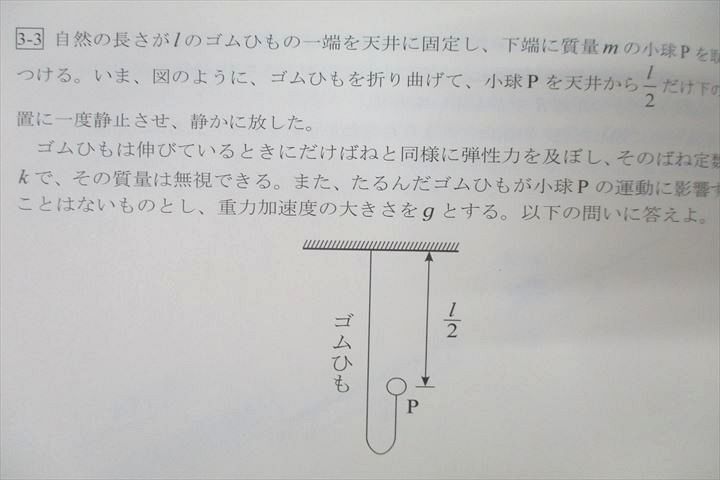 3-3 自然の長さがlのゴムひもの一端を天井に固定し、下端に質量mの小球Pを取
つける。いま、図のように、ゴムひもを折り曲げて、小球Pを天井からl/2だけ下の
置に一度静止させ、静かに放した。
ゴムひもは伸びているときにだけばねと同様に弾性力を及ぼし、そのばね定数
kで、その質量は無視できる。また、たるんだゴムひもが小球Pの運動に影響す
ことはないものとし、重力加速度の大きさをgとする。以下の問いに答えよ。
ゴムひも
l/2
P